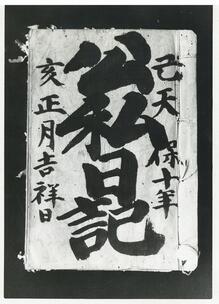 天保十年
己
公私日記
亥正月吉祥日